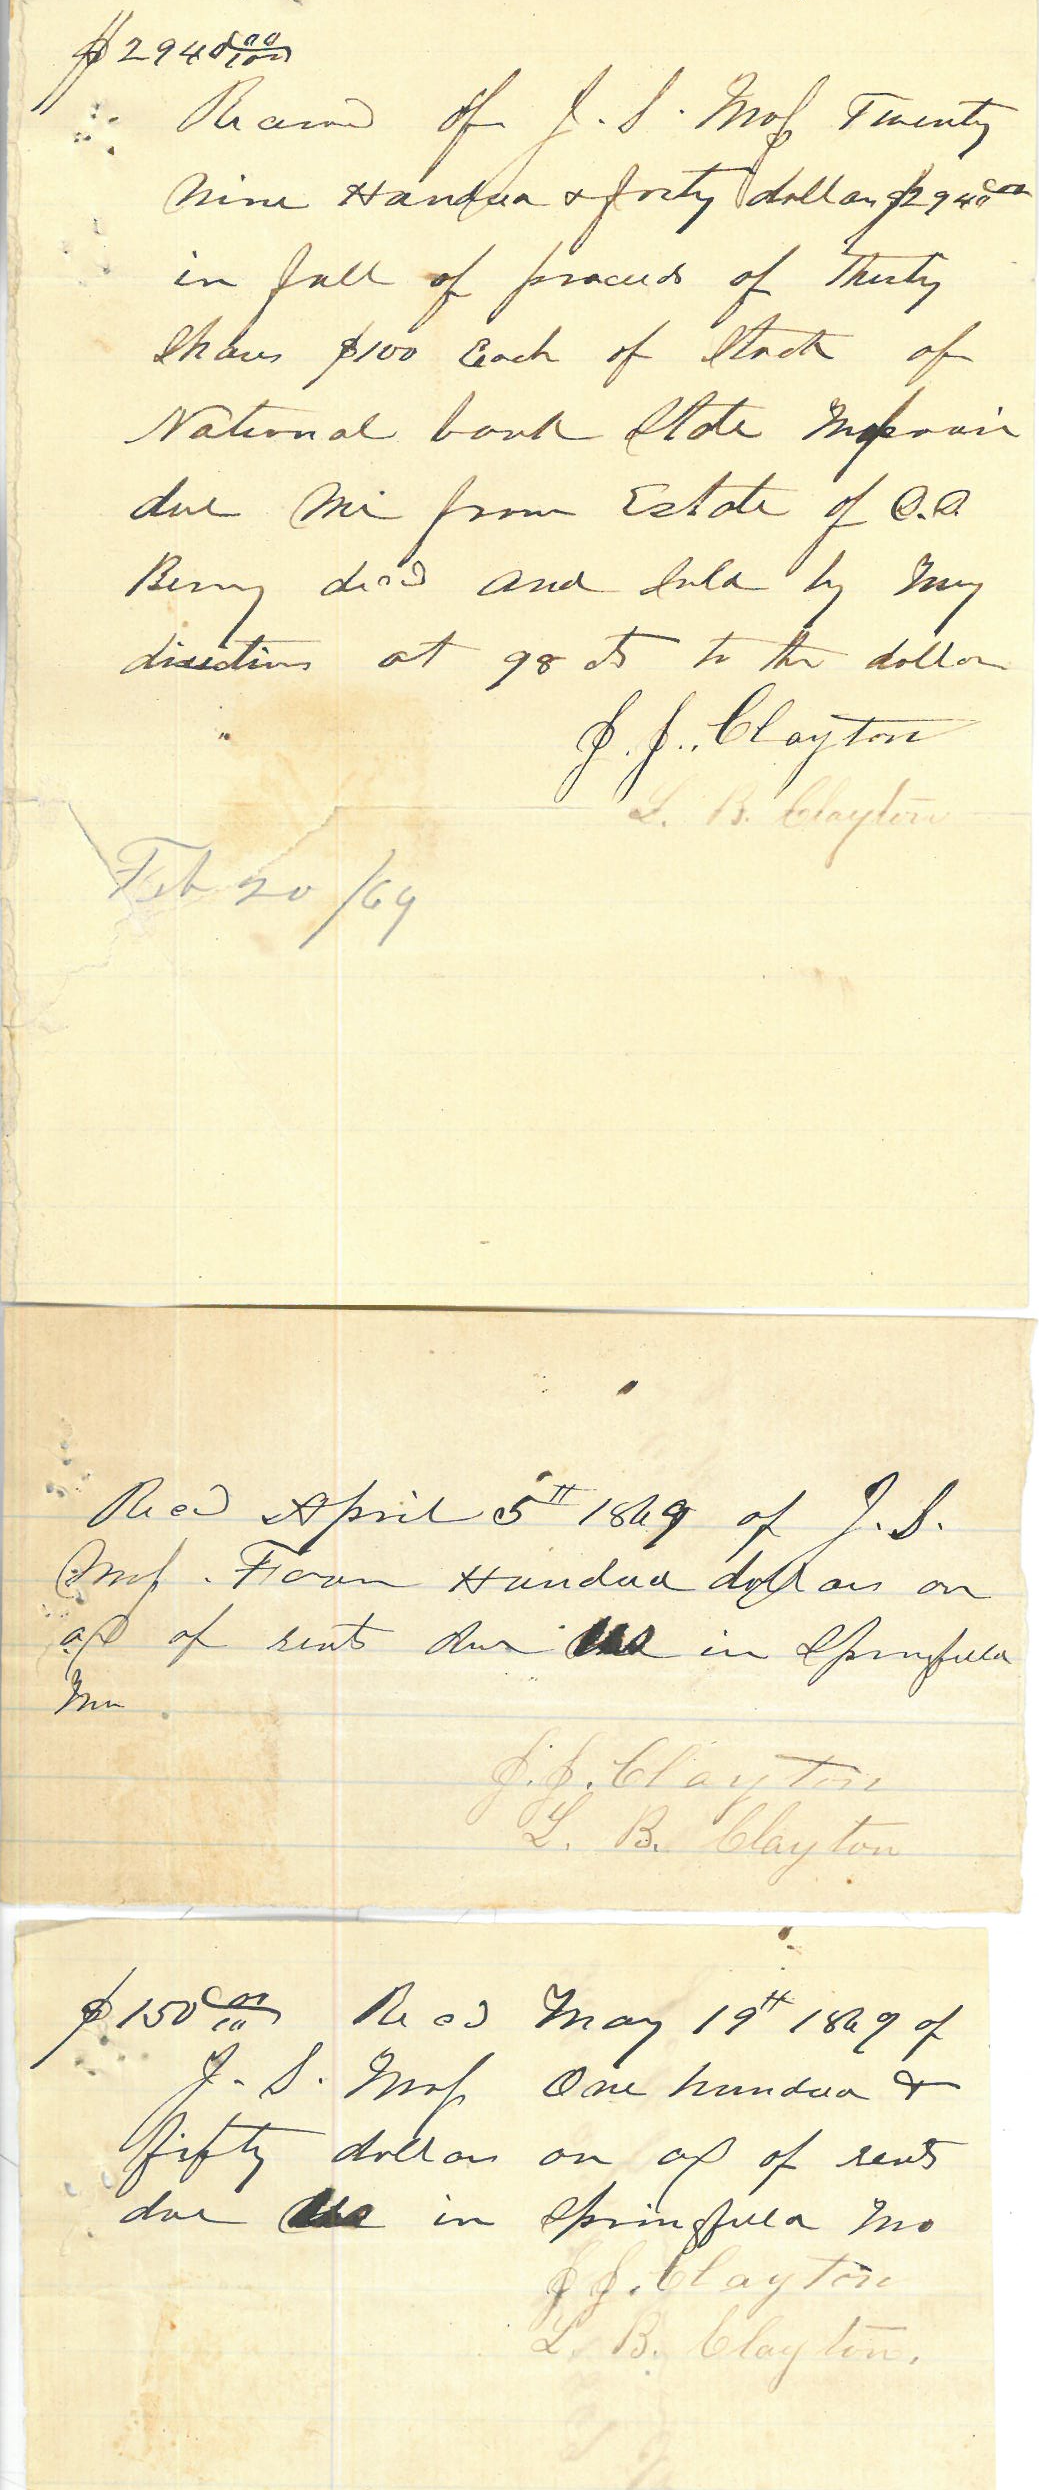 $2940 00/100
Received of J. S. Moss Twenty
Nine Hundred & forty dollars $2940 00
in full of proceeds of Thirty
Shares $100 Each of Stock of
National bank State Missouri
due Me from Estate of
Berry decd and sold by my
directions at 98 cts to the dollar
J. J. Clayton
L. B. Clayton
Feb 20/69
Recd April 5th 1869 of J. S.
Moss. Hundred dollars on
a/c of rents due in Springfield
Mo
J. J. Clayton
L. B. Clayton
$150 00/100 Recd May 19th 1869 of
J. S. Moss One hundred &
fifty dollars on a/c of rents
due in Springfield Mo
J J. Clayton
L. B. Clayton.